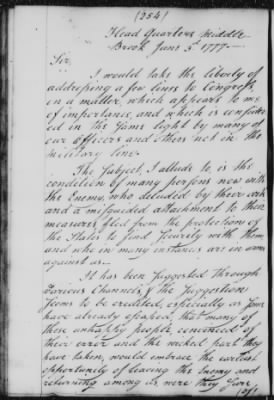 (254)
Head Quarters Middle
Brook June 5th 1777
Sir
I would take the liberty of
addressing a few lines to Congress
on a matter, which appears to me
of importance, and which is consider
ed in the same light by many of
our officers and others not in the
military line.
The Subject, I allude to, is the
condition of many persons now with
the Enemy, who deluded by their arts
and a misguided attachment to their
measures fled from the protection of
the States to find security with them
and who in many instances are in arms
against us.
It has been suggested through
various Channels, & the suggestion
seems to be credited, especially as some
have already escaped, that many of
these unhappy people convinced of
their error and the wicked part they
have taken, would embrace the earliest
opportunity of leaving the Enemy and
returning among us, were they sure